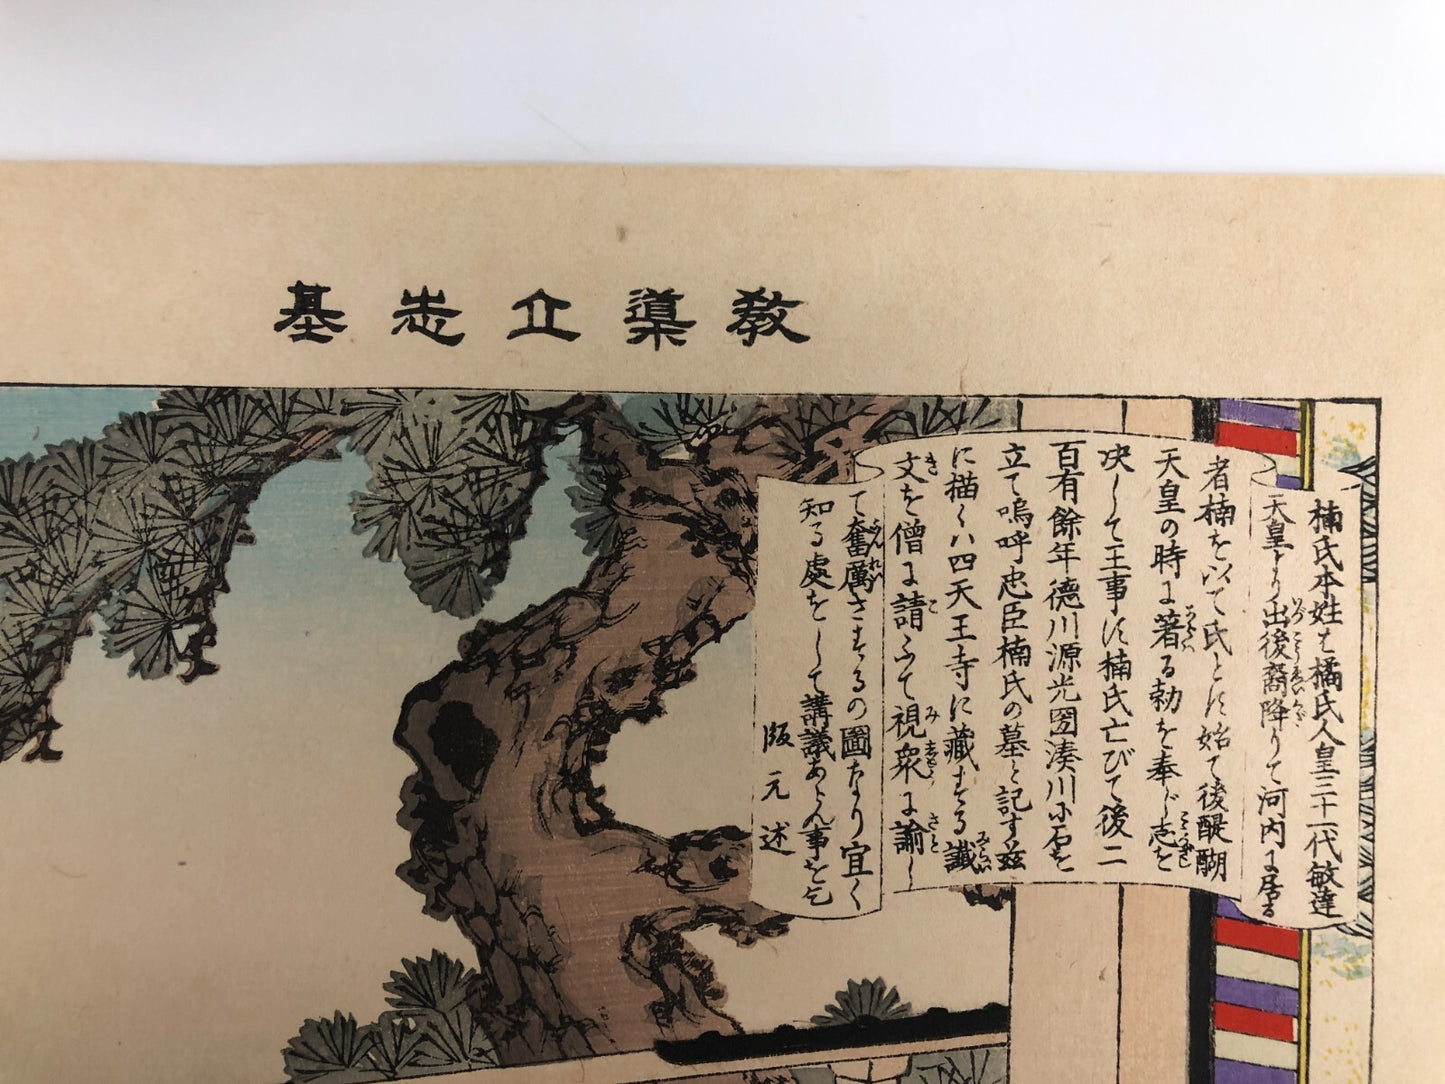 教導立志基
楠氏本姓は橘氏人皇三十一代敏達
天皇より出後裔降りて河内に居る
者楠を以て氏とす始て後醍醐
天皇の時に著る勅を奉じ志を
决して王事す楠氏亡びて後二
百有餘年德川源光圀湊川に石を
立て嗚呼忠臣楠氏の墓と記す茲
に描くハ四天王寺に藏する讖
文を僧に請ふて視衆に諭し
て奮厲さするの圖なり宜く
知る處をして講議あらん事を乞
版元述